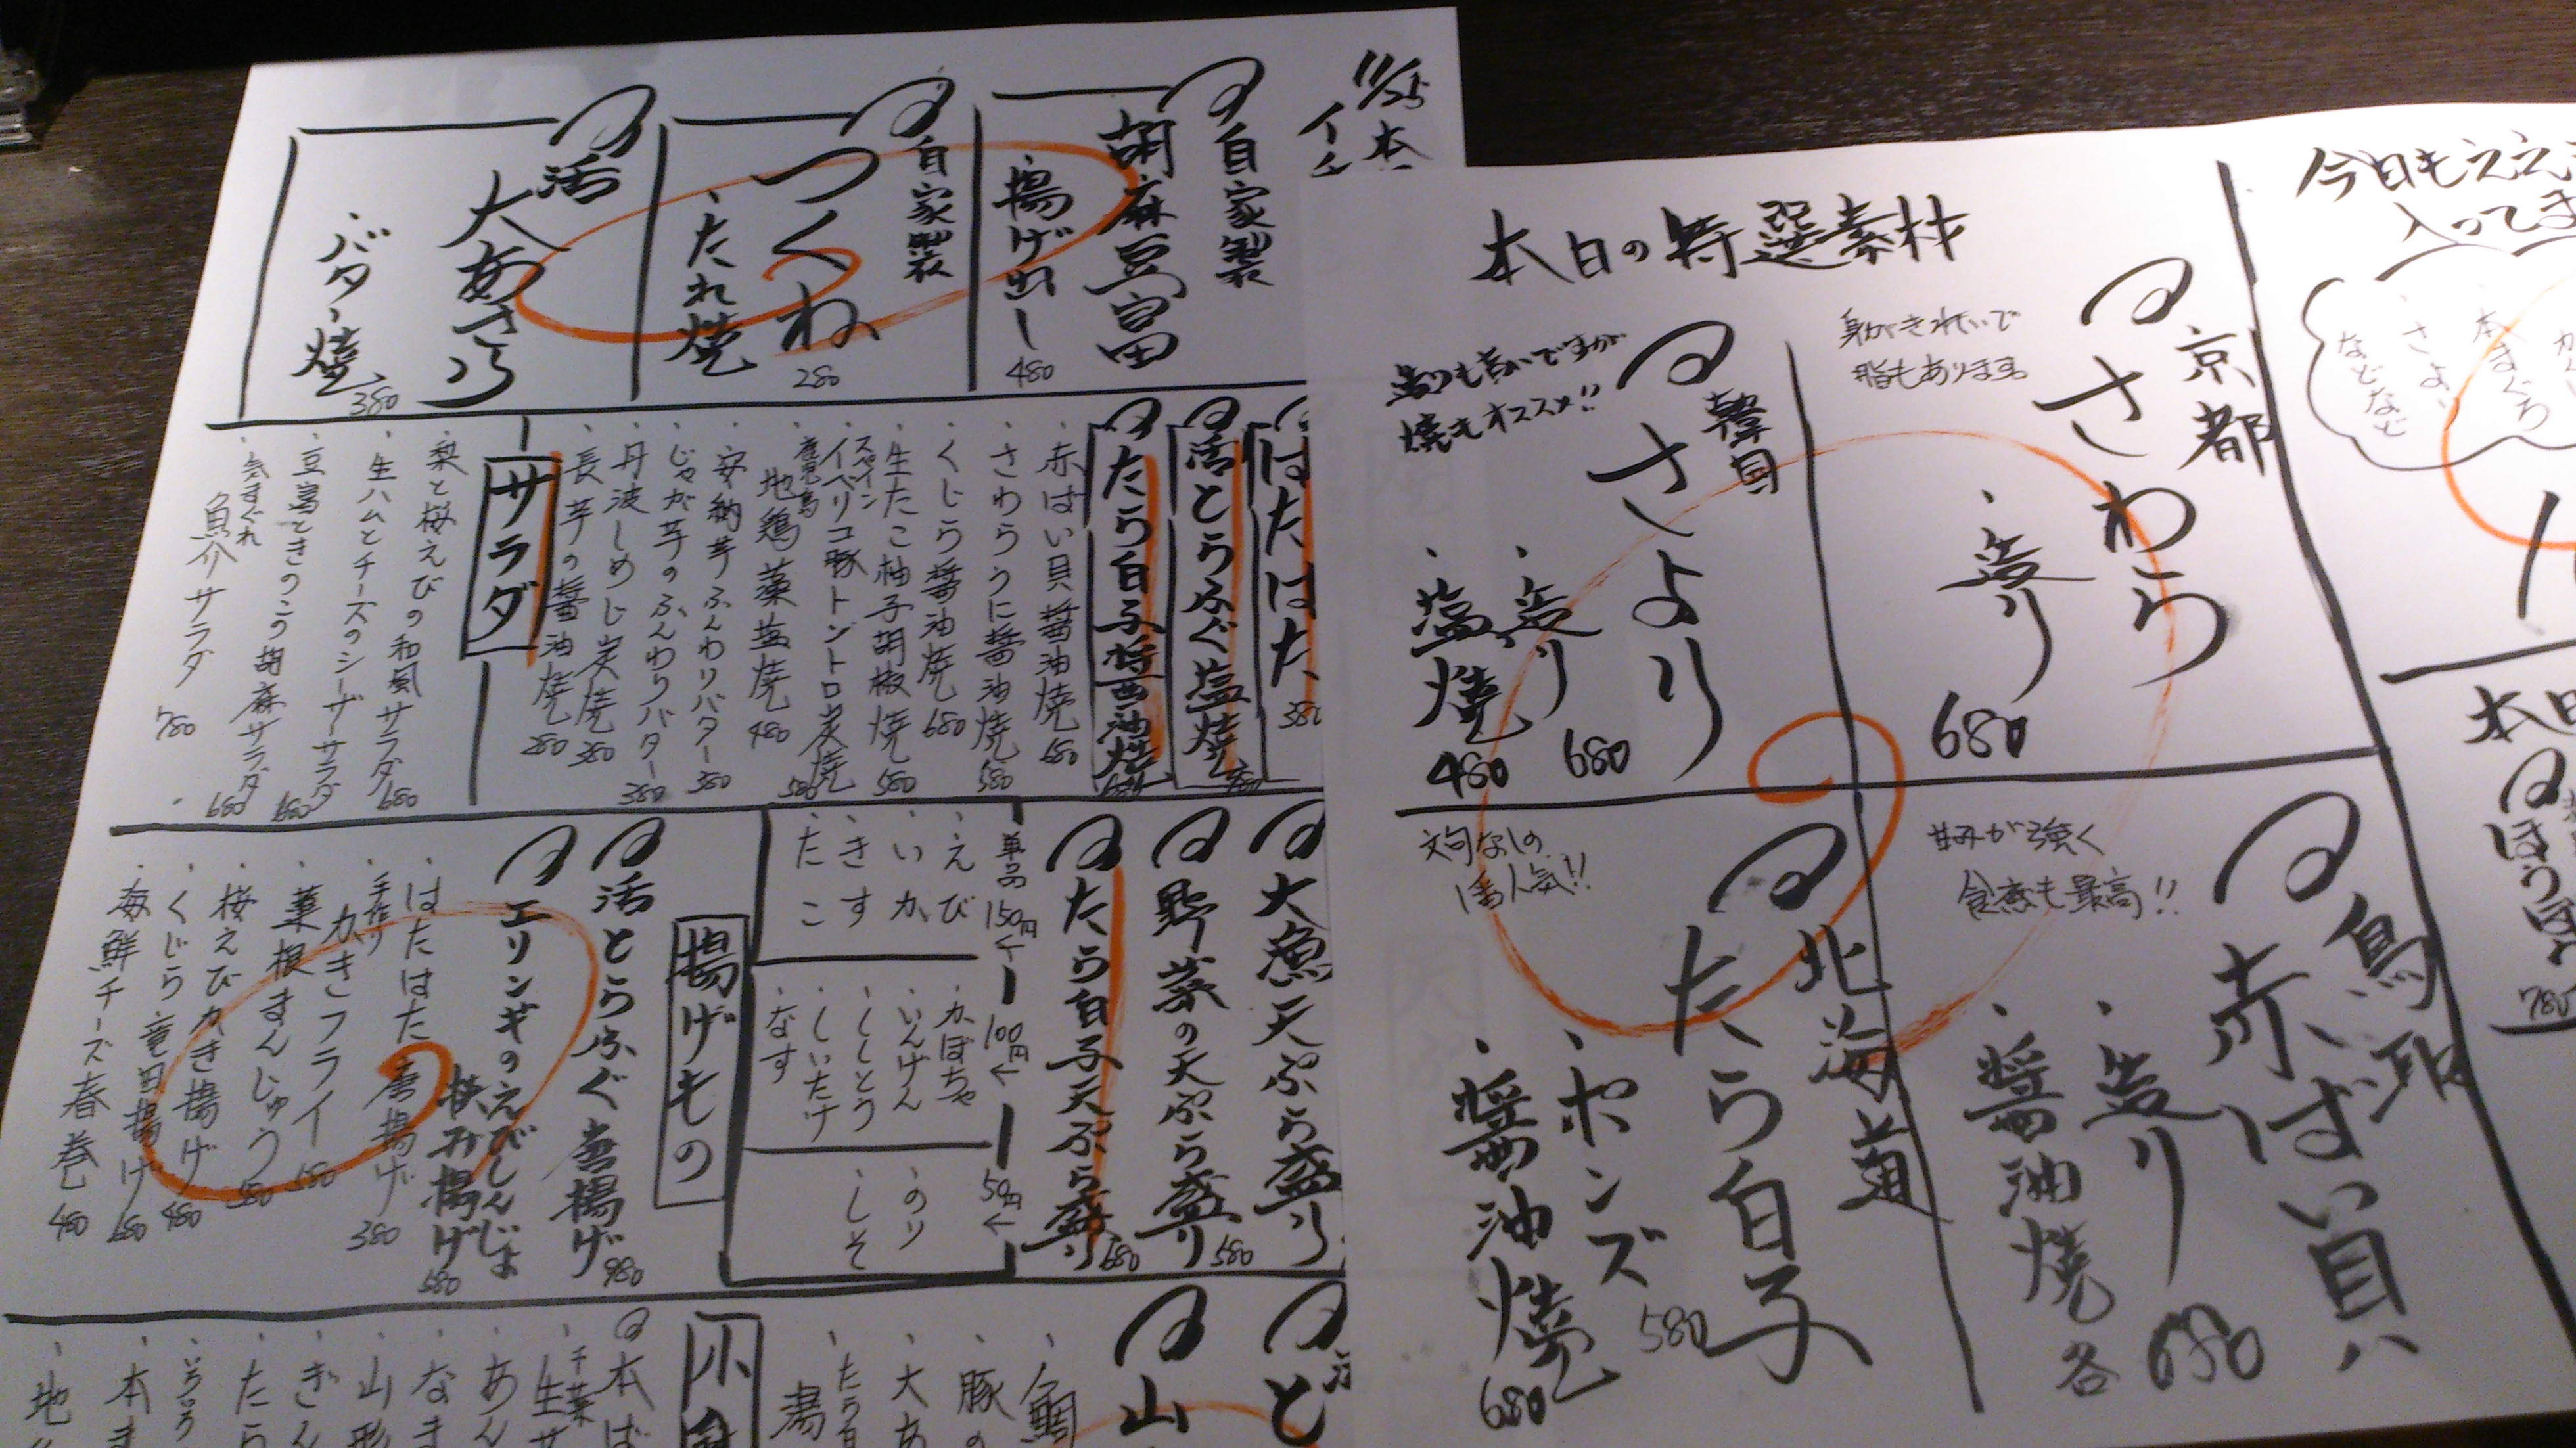 11/25
本
イチ
自家製
胡麻豆富
・揚げ出し
480
自家製
つくね
・たれ焼
280
活
大あさり
・バター焼
380
はたはた
380
活とらふぐ塩焼
たら白子醤油焼
・赤ばい貝醤油焼 680
・さわらうに醤油焼 580
・くじら醤油焼 680
・生たこ柚子胡椒焼 580
・スペイン
イベリコ豚トントロ炭焼 580
・鹿児島
地鶏藻塩焼 480
・安納芋ふんわりバター 380
・じゃが芋のふんわりバター 380
・丹波しめじ炭焼 380
・長芋の醤油焼 280
サラダ
・梨と桜えびの和風サラダ 680
・生ハムとチーズのシーザーサラダ 680
・豆富ときのこの胡麻サラダ 680
・気まぐれ
魚介サラダ 780
大漁天ぷら盛り
野菜の天ぷら盛り 580
たら白子天ぷら盛り 680
単品
150円←
・えび
・いか
・きす
・たこ
100円←
・かぼちゃ
・いんげん
・ししとう
・しいたけ
・なす
50円←
・のり
・しそ
揚げもの
活とらふぐ唐揚げ 980
エリンギのえびしんじょ
挟み揚げ 580
・はたはた唐揚げ 380
・手作り
かきフライ 580
・蓮根まんじゅう
・桜えびかき揚げ 480
・くじら竜田揚げ 680
・海鮮チーズ春巻 480
ど
山
・鯛
・豚の
・大あ
・たら白
小
本ば
・千葉
生サ
・あん
・なま
・山形
・ぎん
・たら
・いろいろ
・本ま
・地
今日もええ
入ってま
本まぐろ
さより
などなど
本日の特選素材
京都
さわら
身がきれいで
脂もあります。
・造り
680
韓国
さより
造りも旨いですが
焼もオススメ!!
・造り
680
・塩焼
480
鳥取
赤ばい貝
甘みが強く
食感も最高!!
・造り
・醤油焼
各680
北海道
たら白子
文句なしの
1番人気!!
・ポンズ
580
・醤油焼
680
本日
ほうぼう
780